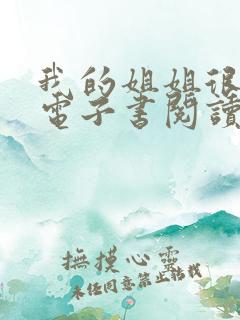 我的姐姐很
電子書閱讀
撫摸心靈
未經同意禁止轉載